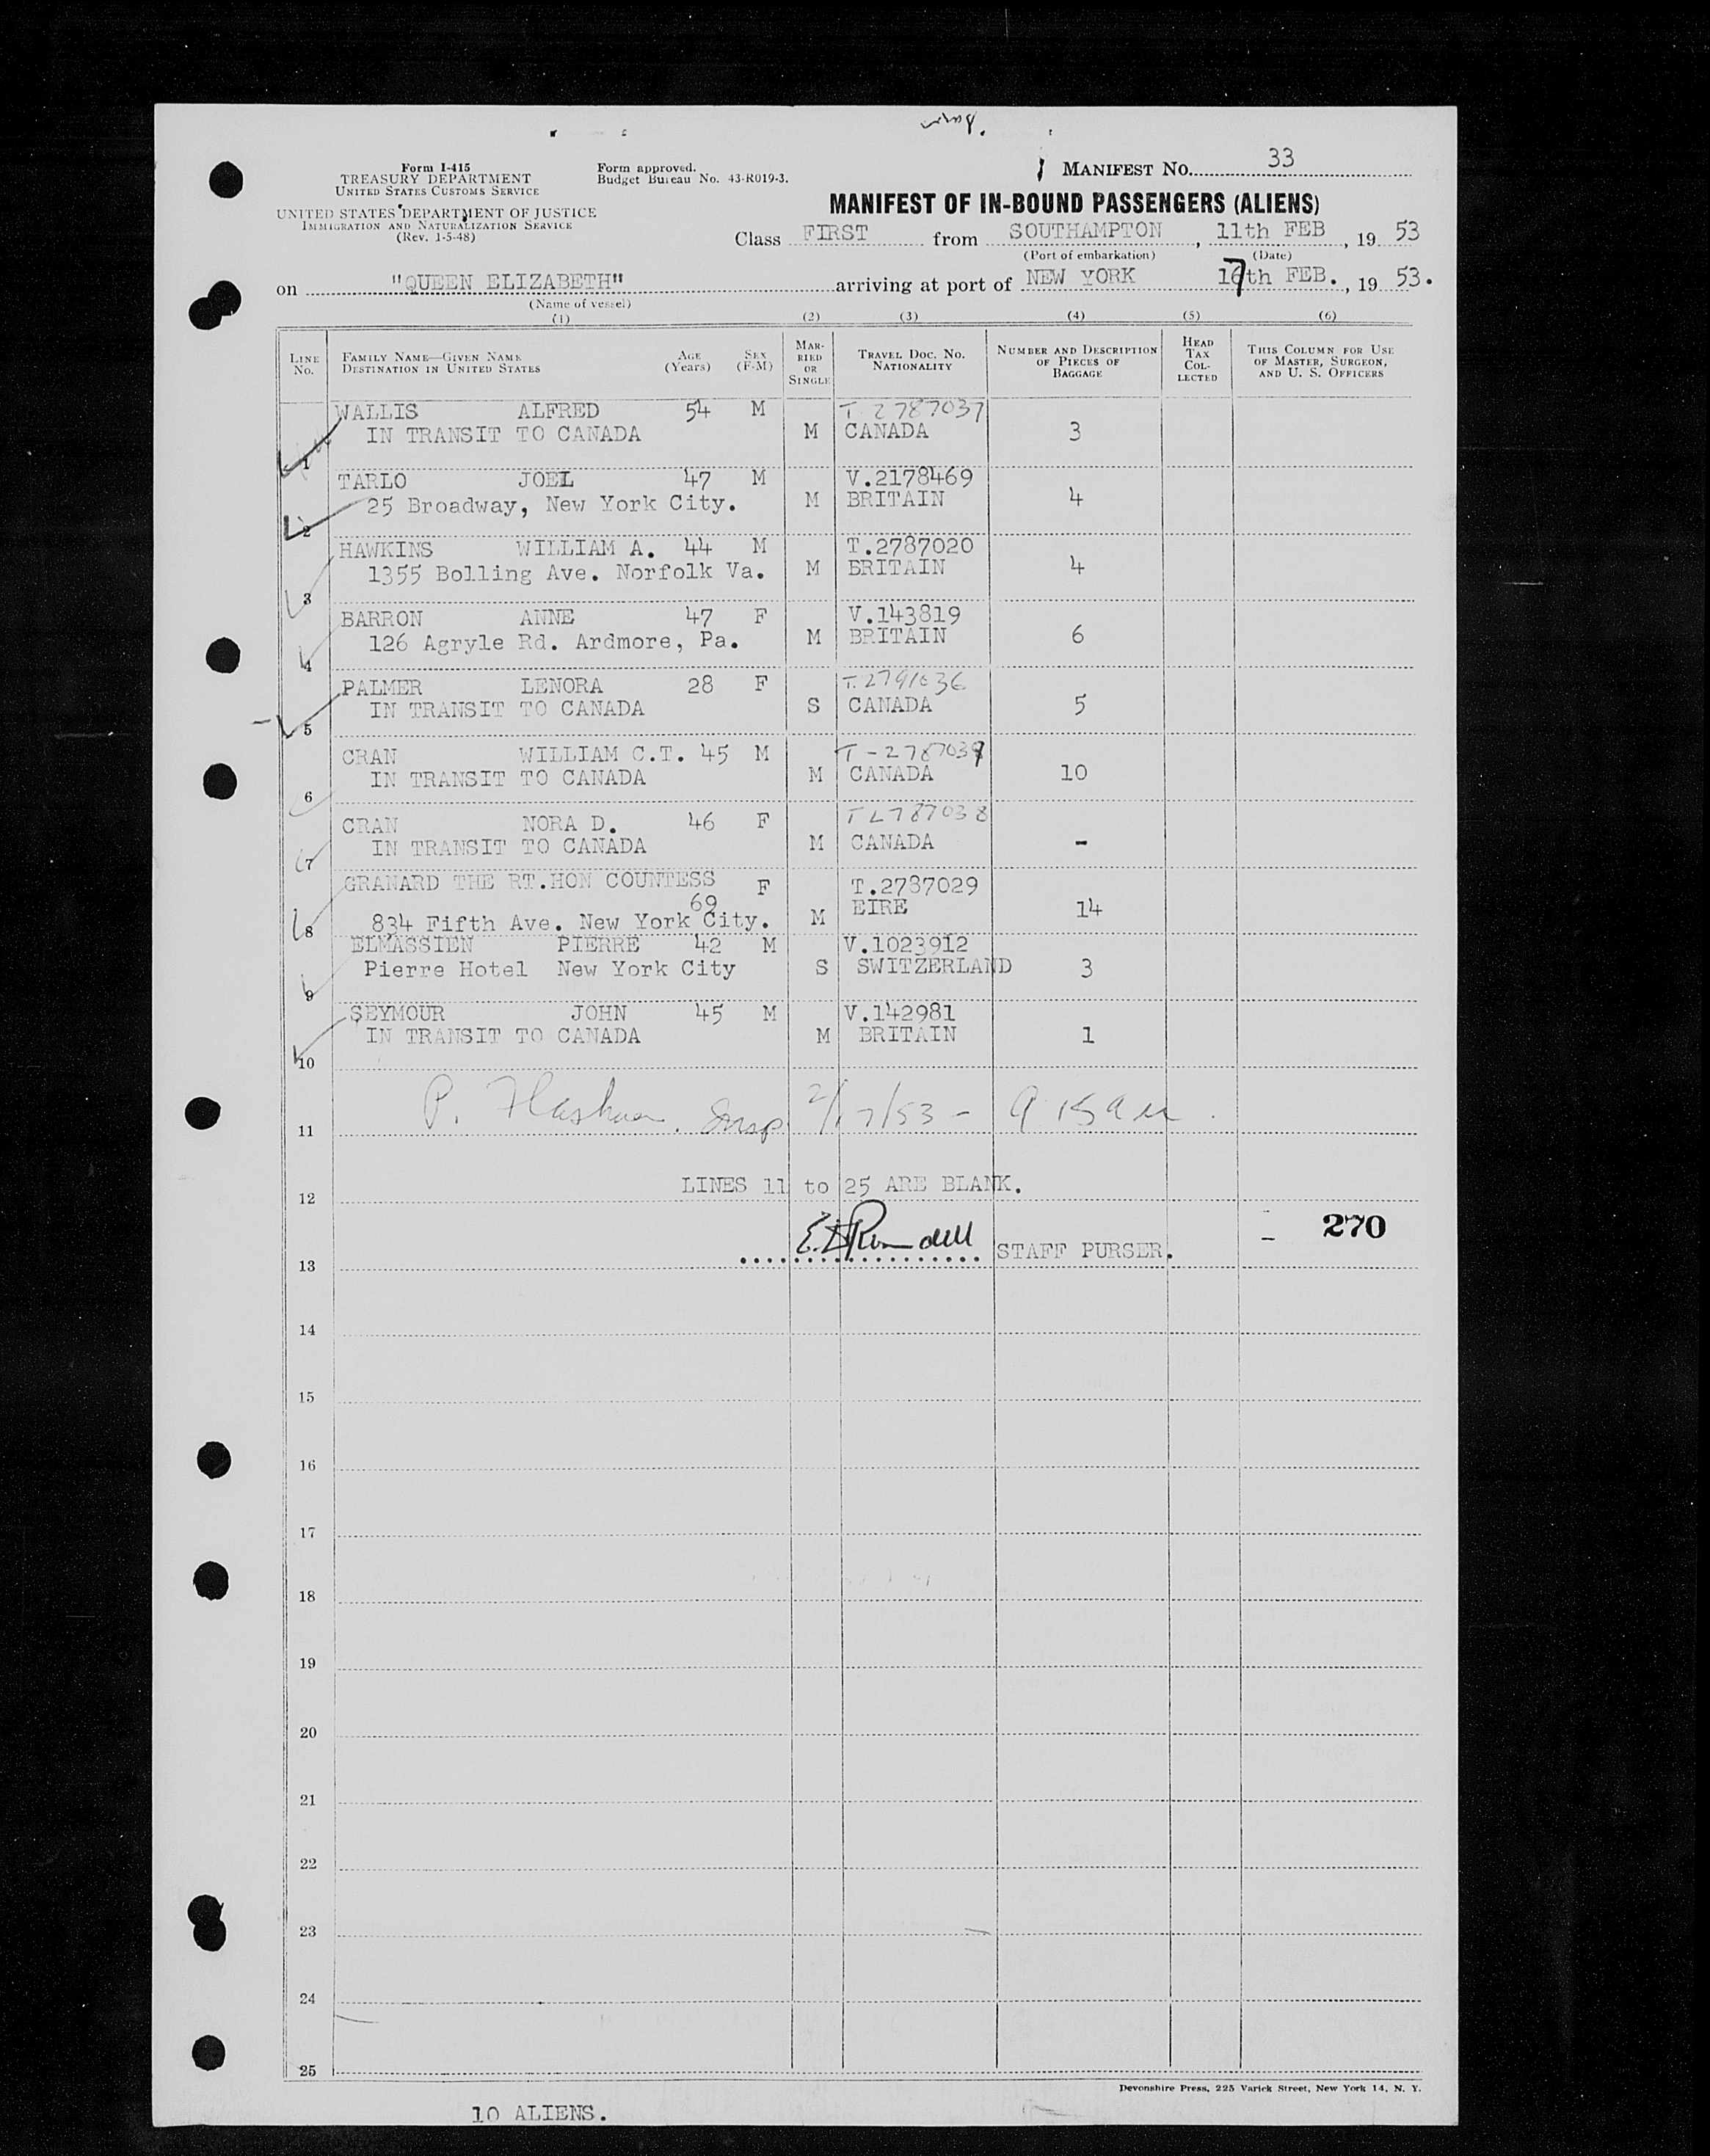 Form I-415
TREASURY DEPARTMENT
UNITED STATES CUSTOMS SERVICE
UNITED STATES DEPARTMENT OF JUSTICE
IMMIGRATION AND NATURALIZATION SERVICE
(Rev. 1-5-48)
Form approved.
Budget Bureau No. 43-R019-3.
MANIFEST No. 33
MANIFEST OF IN-BOUND PASSENGERS (ALIENS)
Class FIRST from SOUTHAMPTON, 11th FEB, 19 53
(Port of embarkation) (Date)
on "QUEEN ELIZABETH" arriving at port of NEW YORK 17th FEB., 19 53.
(Name of vessel)
(1) (2) (3) (4) (5) (6)
LINE No. FAMILY NAME—GIVEN NAME DESTINATION IN UNITED STATES AGE (Years) SEX (F-M) MARRIED OR SINGLE TRAVEL DOC. No. NATIONALITY NUMBER AND DESCRIPTION OF PIECES OF BAGGAGE HEAD TAX COLLECTED THIS COLUMN FOR USE OF MASTER, SURGEON, AND U. S. OFFICERS
WALLIS ALFRED 54 M T 2787037
1 IN TRANSIT TO CANADA M CANADA 3
TARLO JOEL 47 M V.2178469
2 25 Broadway, New York City. M BRITAIN 4
HAWKINS WILLIAM A. 44 M T.2787020
3 1355 Bolling Ave. Norfolk Va. M BRITAIN 4
BARRON ANNE 47 F V.143819
4 126 Agryle Rd. Ardmore, Pa. M BRITAIN 6
PALMER LENORA 28 F T.2791036
5 IN TRANSIT TO CANADA S CANADA 5
CRAN WILLIAM C.T. 45 M T-2787039
6 IN TRANSIT TO CANADA M CANADA 10
CRAN NORA D. 46 F T2787038
7 IN TRANSIT TO CANADA M CANADA -
GRANARD THE RT.HON COUNTESS 69 F T.2787029
8 834 Fifth Ave. New York City. M EIRE 14
ELMASSIEN PIERRE 42 M V.1023912
9 Pierre Hotel New York City S SWITZERLAND 3
SEYMOUR JOHN 45 M V.142981
10 IN TRANSIT TO CANADA M BRITAIN 1
11 P. Insp 2/17/53 -
12 LINES 11 to 25 ARE BLANK.
270
13 STAFF PURSER.
14
15
16
17
18
19
20
21
22
23
24
25
Devonshire Press, 225 Varick Street, New York 14, N. Y.
10 ALIENS.